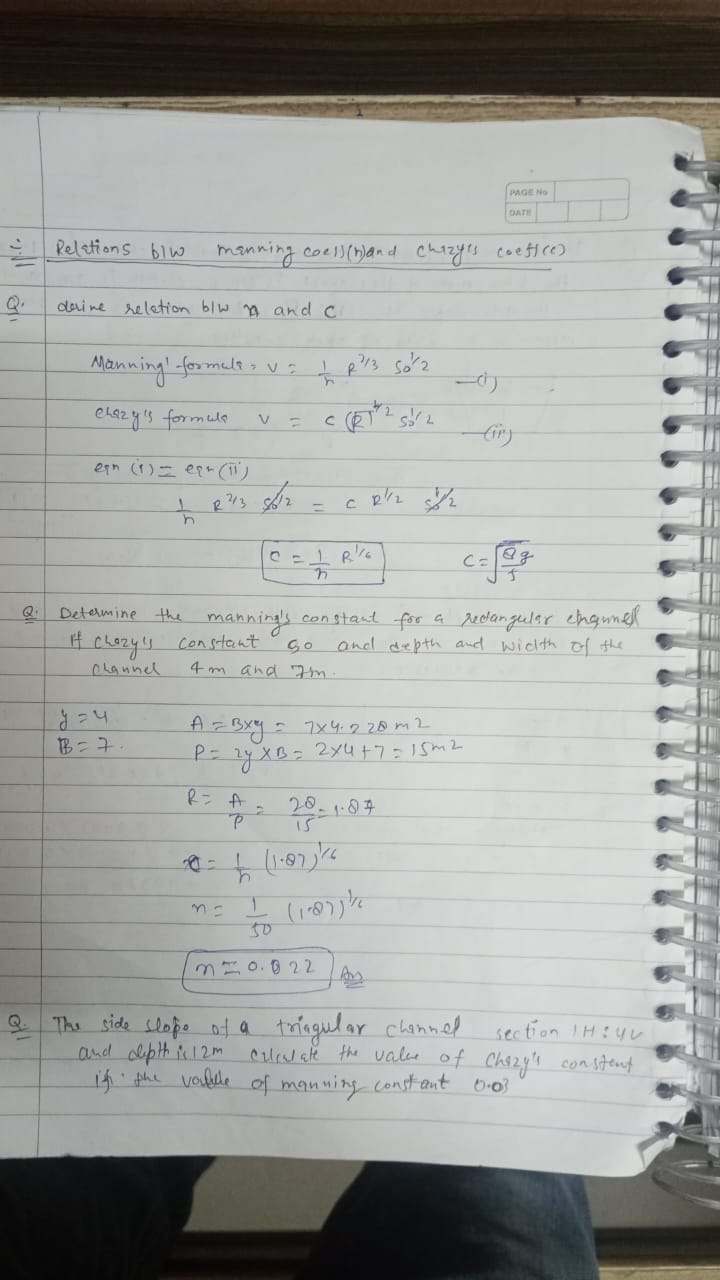 PAGE No
DATE
Relations b/w manning coeff(n) and chezy's coeff(c)
Q. derive relation b/w n and c
Manning' formula = v = 1/n R^2/3 So^1/2 —(i)
chezy's formula v = c (R)^1/2 So^1/2 —(ii)
eqn (i) = eqn (ii)
1/n R^2/3 So^1/2 = c R^1/2 So^1/2
c = 1/n R^1/6 C = √8g/f
Q. Determine the manning's constant for a rectangular channel
if chezy's constant 50 and depth and width of the
channel 4m and 7m.
y = 4 A = B×y = 7×4 = 28 m2
B = 7. P = 2y × B = 2×4+7 = 15m2
R = A/P = 28/15 = 1.87
c = 1/n (1.87)^1/6
n = 1/50 (1.87)^1/6
n = 0.022 Ans
Q. The side slope of a triagular channel section 1H:4V
and depth is 12m calculate the value of chezy's constent
if the value of manning constant 0.03